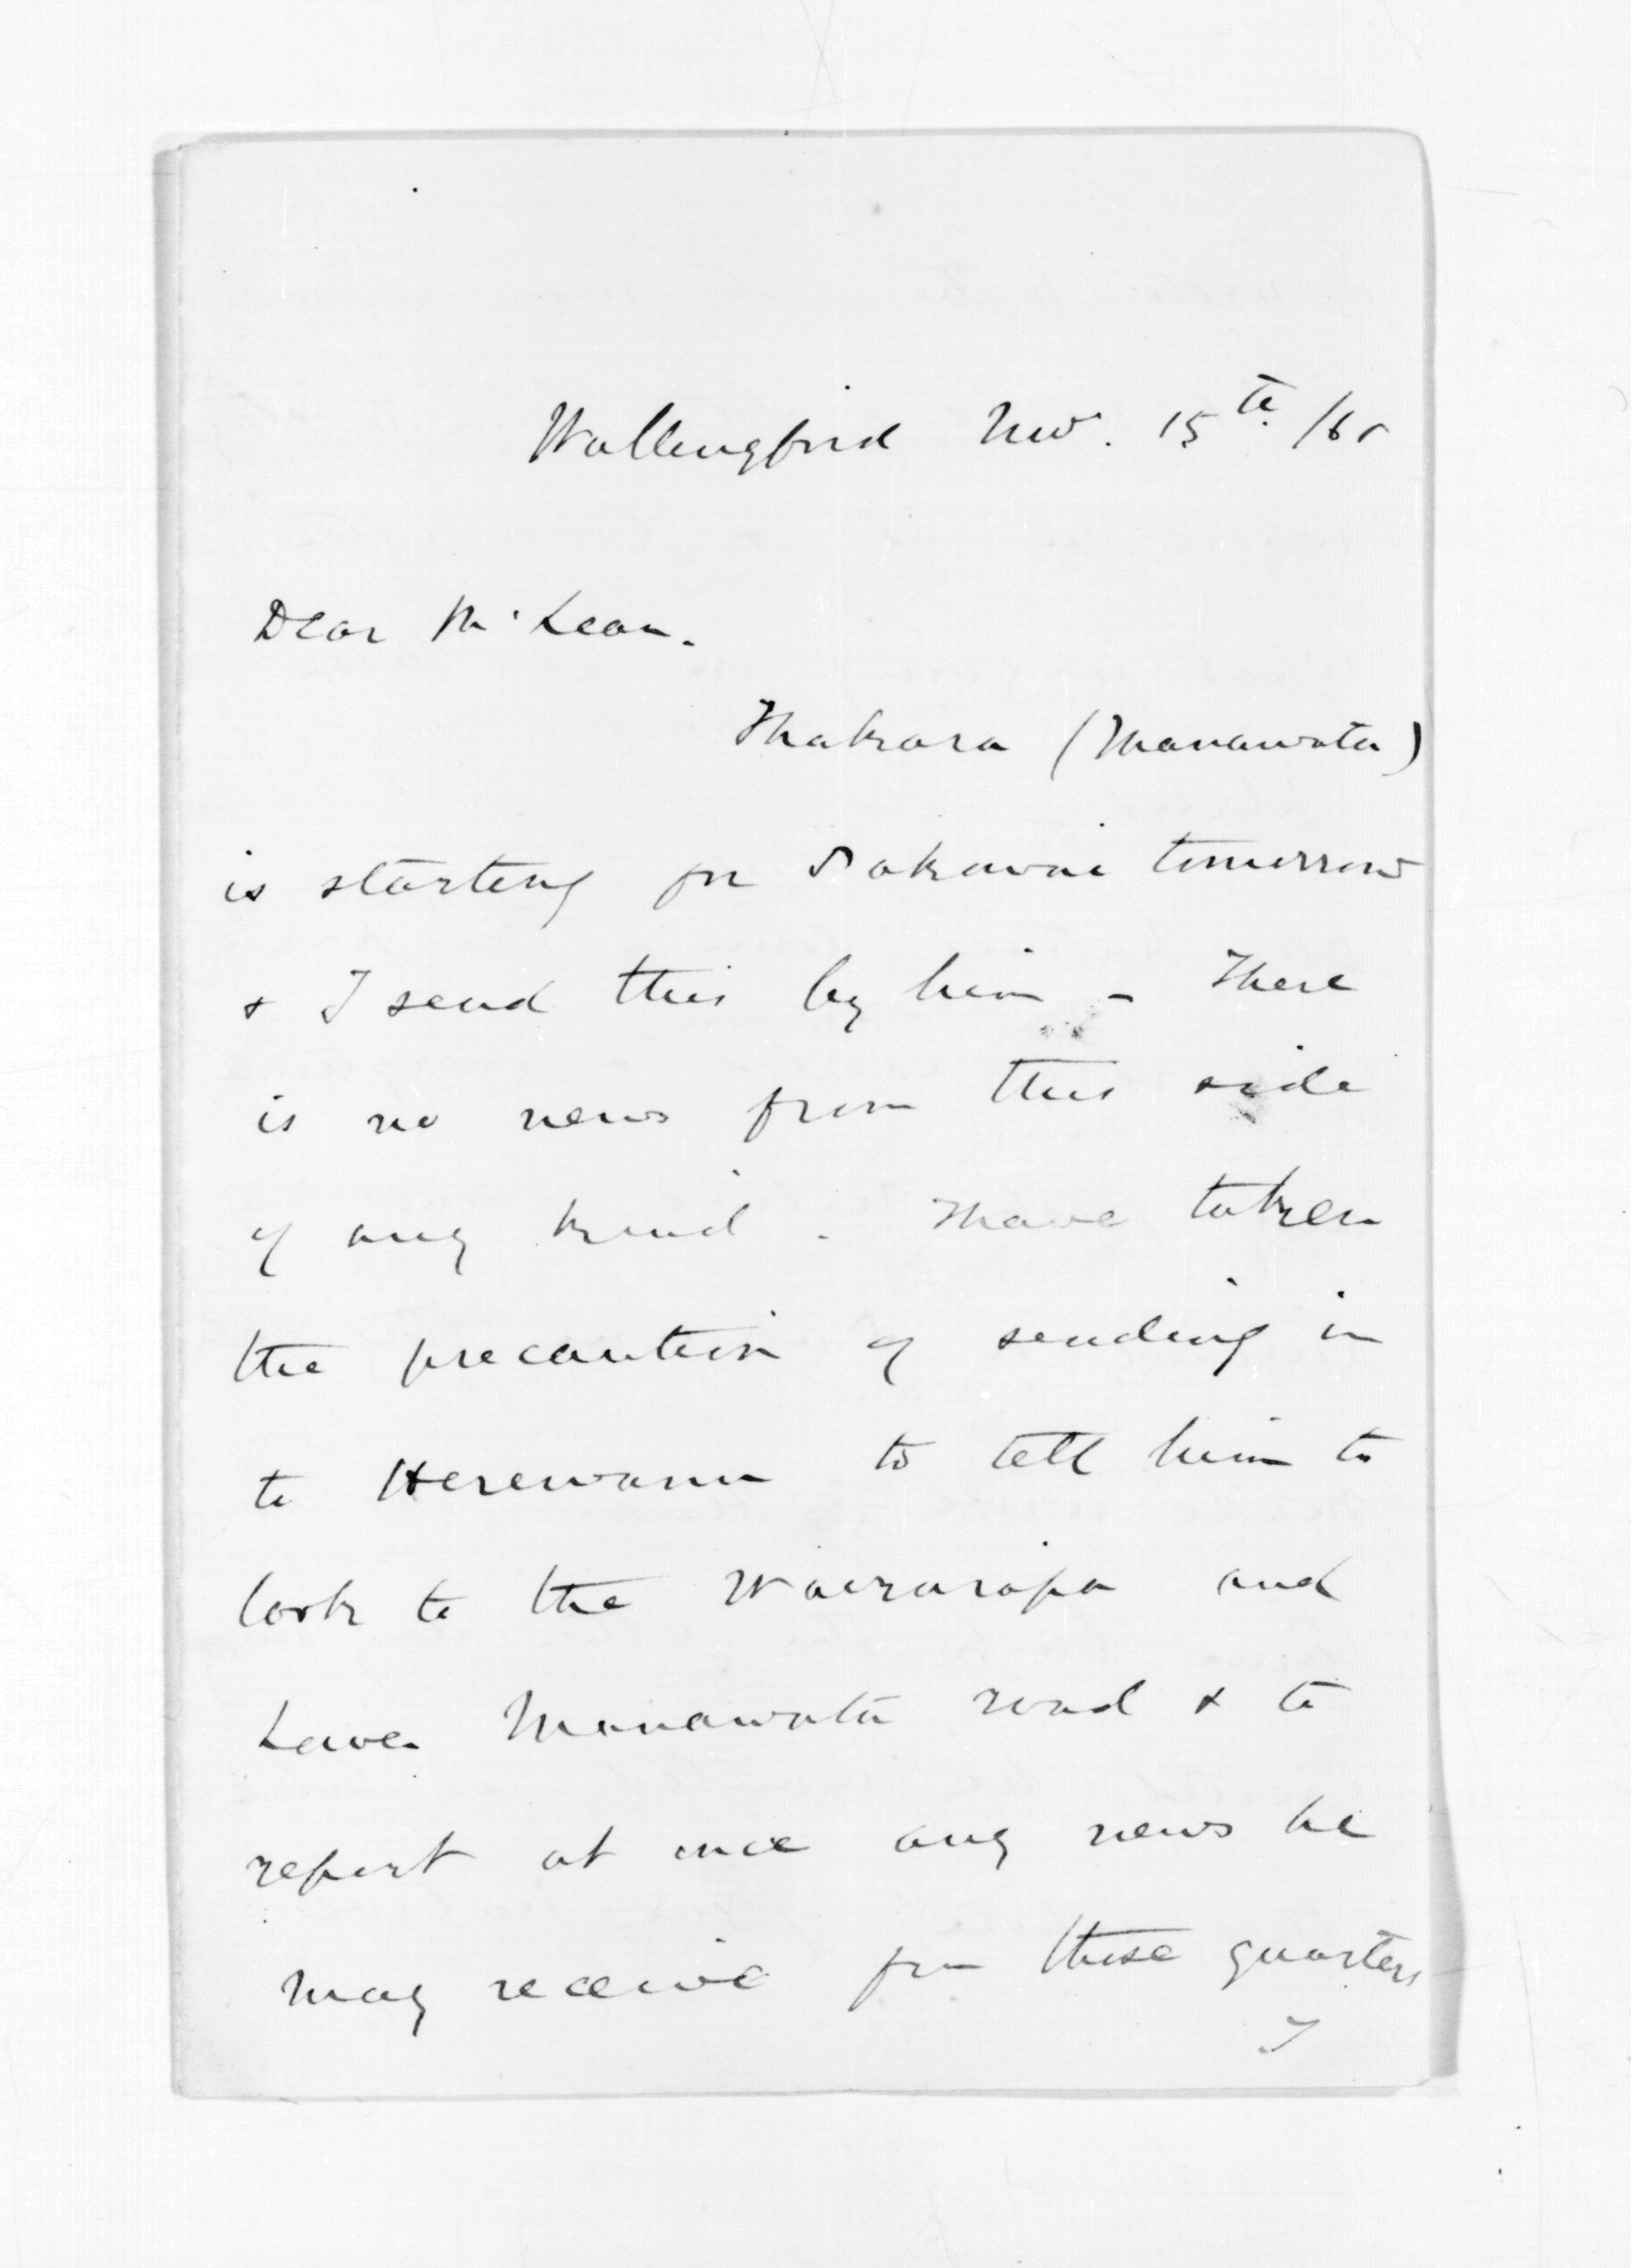 Wallingford Nov. 15th /65
Dear McLean.
Makara (Manawatu)
is starting for Pakowai tomorrow
& I send this by him - There
is no news from this side
of any kind. I have taken
the precaution of sending in
to to tell him to
look to the Wairarapa and
Manawatu road & to
report at once any news he
may receive from those quarters
I